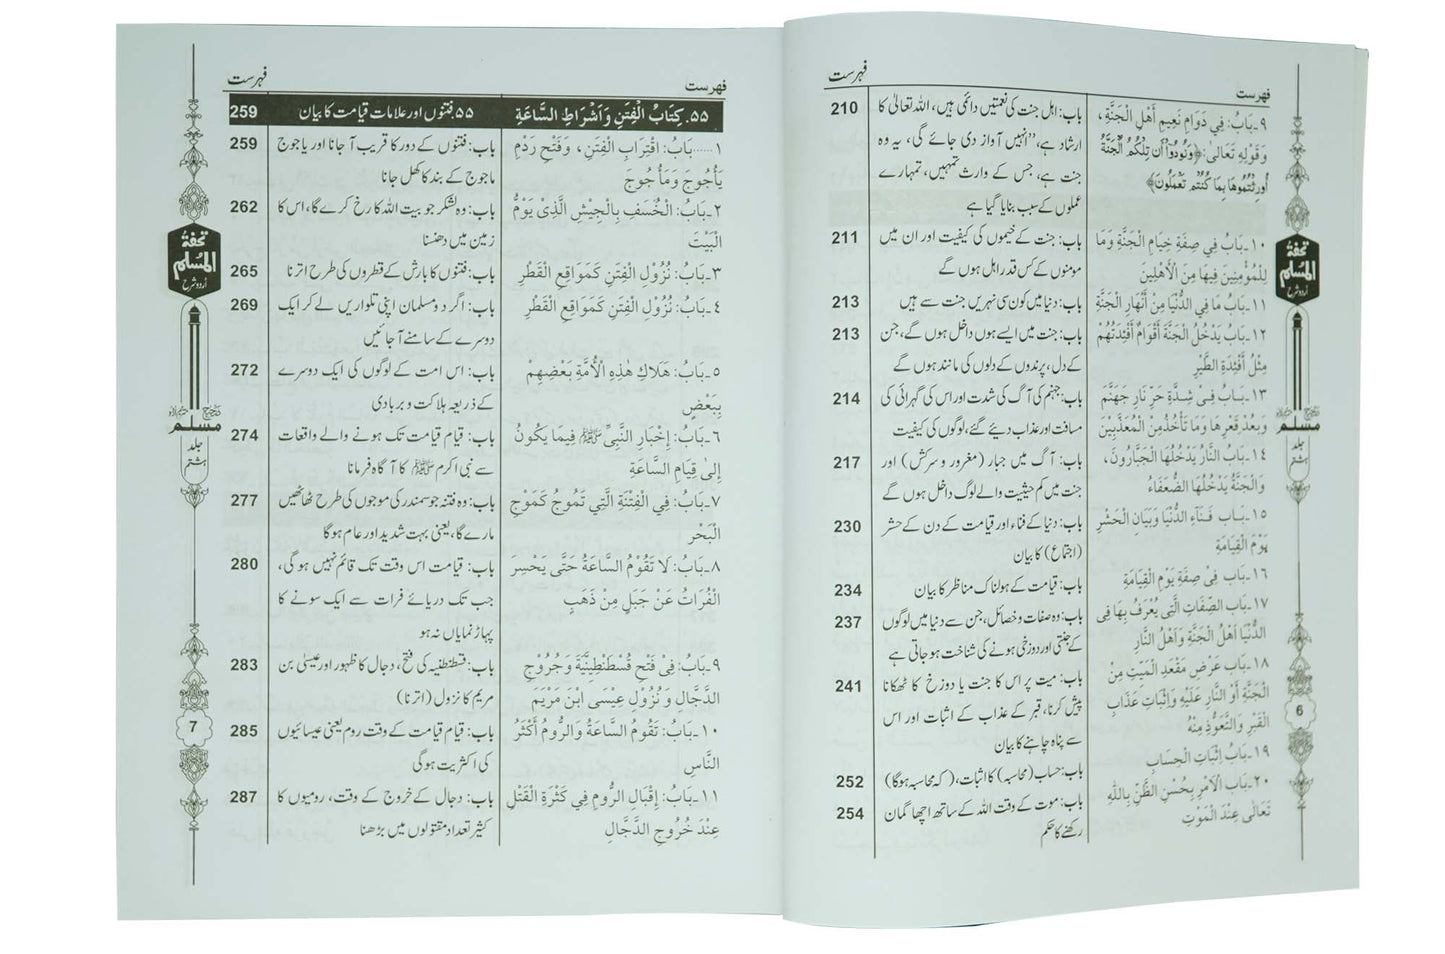 فہرست
فہرست
٩۔بَابُ: فِي دَوَامِ نَعِيمِ أَهْلِ الْجَنَّةِ، باب: اہل جنت کی نعمتیں دائمی ہیں، اللہ تعالیٰ کا 210
وَقَوْلِهِ تَعَالىٰ: ﴿وَنُودُوٓا أَن تِلْكُمُ الْجَنَّةُ ارشاد ہے، ”انہیں آواز دی جائے گی، یہ وہ
أُورِثْتُمُوهَا بِمَا كُنتُمْ تَعْمَلُونَ﴾ جنت ہے، جس کے وارث تمہیں، تمہارے
عملوں کے سبب بنایا گیا ہے
١٠۔بَابُ فِي صِفَةِ خِيَامِ الْجَنَّةِ وَمَا باب: جنت کے خیموں کی کیفیت اور ان میں 211
لِلْمُؤْمِنِينَ فِيهَا مِنَ الْأَهْلِينَ مومنوں کے کس قدر اہل ہوں گے
١١۔بَابُ مَا فِي الدُّنْيَا مِنْ أَنْهَارِ الْجَنَّةِ باب: دنیا میں کون سی نہریں جنت سے ہیں 213
١٢۔بَابُ يَدْخُلُ الْجَنَّةَ أَقْوَامٌ أَفْئِدَتُهُمْ باب: جنت میں ایسے ہوں داخل ہوں گے، جن 213
مِثْلُ أَفْئِدَةِ الطَّيْرِ کے دل، پرندوں کے دلوں کی مانند ہوں گے
١٣۔بَابُ فِيْ شِدَّةِ حَرِّ نَارِ جَهَنَّمَ باب: جہنم کی آگ کی شدت اور اس کی گہرائی کی 214
وَبُعْدِ قَعْرِهَا وَمَا تَأْخُذُ مِنَ الْمُعَذَّبِينَ مسافت اور عذاب دیئے گئے، لوگوں کی کیفیت
١٤۔بَابُ النَّارُ يَدْخُلُهَا الْجَبَّارُونَ، باب: آگ میں جبار (مغرور و سرکش) اور 217
وَالْجَنَّةُ يَدْخُلُهَا الضُّعَفَاءُ جنت میں کم حیثیت والے لوگ داخل ہوں گے
١٥۔بَاب فَنَاءِ الدُّنْيَا وَبَيَانِ الْحَشْرِ باب: دنیا کے فناء اور قیامت کے دن کے حشر 230
يَوْمَ الْقِيَامَةِ (اجتماع) کا بیان
١٦۔بَاب فِيْ صِفَةِ يَوْمِ الْقِيَامَةِ باب: قیامت کے ہولناک مناظر کا بیان 234
١٧۔بَاب الصِّفَاتِ الَّتِي يُعْرَفُ بِهَا فِي باب: وہ صفات و خصائل، جن سے دنیا میں لوگوں 237
الدُّنْيَا أَهْلُ الْجَنَّةِ وَأَهْلُ النَّارِ کے جنتی اور دوزخی ہونے کی شناخت ہو جاتی ہے
١٨۔بَاب عَرْضِ مَقْعَدِ الْمَيِّتِ مِنَ باب: میت پر اس کا جنت یا دوزخ کا ٹھکانا 241
الْجَنَّةِ أَوِ النَّارِ عَلَيْهِ وَإِثْبَاتِ عَذَابِ پیش کرنا، قبر کے عذاب کے اثبات اور اس
الْقَبْرِ وَالتَّعَوُّذِ مِنْهُ سے پناہ چاہنے کا بیان
١٩۔بَابُ إِثْبَاتِ الْحِسَابِ باب: حساب (محاسبہ) کا اثبات، (کہ محاسبہ ہوگا) 252
٢٠۔بَابُ الْأَمْرِ بِحُسْنِ الظَّنِّ بِاللهِ باب: موت کے وقت اللہ کے ساتھ اچھا گمان 254
تَعَالٰى عِنْدَ الْمَوْتِ رکھنے کا حکم
تحفۃ
المسلم
اردو شرح
صحیح
مسلم
جلد
ہشتم
6
فہرست
فہرست
٥٥. كِتَابُ الْفِتَنِ وَأَشْرَاطِ السَّاعَةِ ٥٥. فتنوں اور علامات قیامت کا بیان 259
١......بَابُ: اقْتِرَابِ الْفِتَنِ، وَفَتْحِ رَدْمِ باب: فتنوں کے دور کا قریب آ جانا اور یاجوج 259
يَأْجُوجَ وَمَأْجُوجَ ماجوج کے بند کا کھل جانا
٢۔بَابُ: الْخَسَفِ بِالْجَيْشِ الَّذِىْ يَوُمُّ باب: وہ لشکر جو بیت اللہ کا رخ کرے گا، اس کا 262
الْبَيْتَ زمین میں دھنسنا
٣۔بَابُ: نُزُوْلِ الْفِتَنِ كَمَوَاقِعِ الْقَطْرِ باب: فتنوں کا بارش کے قطروں کی طرح اترنا 265
٤۔بَابُ: نُزُوْلِ الْفِتَنِ كَمَوَاقِعِ الْقَطْرِ باب: اگر دو مسلمان اپنی تلواریں لے کر ایک 269
دوسرے کے سامنے آ جائیں
٥۔بَابُ: هَلَاكِ هٰذِهِ الْأُمَّةِ بَعْضِهِمْ باب: اس امت کے لوگوں کی ایک دوسرے 272
بِبَعْضٍ کے ذریعہ ہلاکت و بربادی
٦۔بَابُ: إِخْبَارِ النَّبِيِّ ﷺ فِيمَا يَكُونُ باب: قیام قیامت تک ہونے والے واقعات 274
إِلىٰ قِيَامِ السَّاعَةِ سے نبی اکرم ﷺ کا آگاہ فرمانا
٧۔بَابُ: فِي الْفِتْنَةِ الَّتِي تَمُوجُ كَمَوْجِ باب: وہ فتنہ جو سمندر کی موجوں کی طرح ٹھاٹھیں 277
الْبَحْرِ مارے گا، یعنی بہت شدید اور عام ہوگا
٨۔بَابُ: لَا تَقُوْمُ السَّاعَةُ حَتَّى يَحْسِرَ باب: قیامت اس وقت تک قائم نہیں ہوگی، 280
الْفُرَاتُ عَنْ جَبَلٍ مِنْ ذَهَبٍ جب تک دریائے فرات سے ایک سونے کا
پہاڑ نمایاں نہ ہو
٩۔بَابُ: فِيْ فَتْحِ قُسْطَنْطِينِيَّةَ وَخُرُوْجِ باب: قسطنطنیہ کی فتح، دجال کا ظہور اور عیسیٰ بن 283
الدَّجَّالِ وَنُزُوْلِ عِيسَى ابْنِ مَرْيَمَ مریم کا نزول (اترنا)
١٠۔بَابُ: تَقُومُ السَّاعَةُ وَالرُّومُ أَكْثَرُ باب: قیام قیامت کے وقت روم یعنی عیسائیوں 285
النَّاسِ کی اکثریت ہوگی
١١۔بَابُ: إِقْبَالِ الرُّومِ فِي كَثْرَةِ الْقَتْلِ باب: دجال کے خروج کے وقت، رومیوں کا 287
عِنْدَ خُرُوجِ الدَّجَّالِ کثیر تعداد مقتولوں میں بڑھنا
تحفۃ
المسلم
اردو شرح
صحیح
مسلم
جلد
ہشتم
7